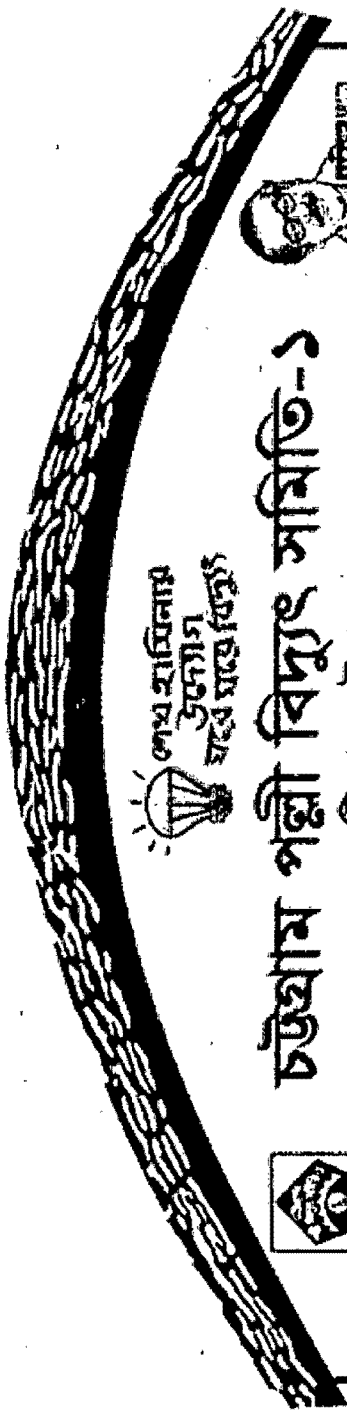 শেখ হাসিনার
উদ্যোগ
ঘরে ঘরে বিদ্যুৎ
চট্টগ্রাম পল্লী বিদ্যুৎ সমিতি-১